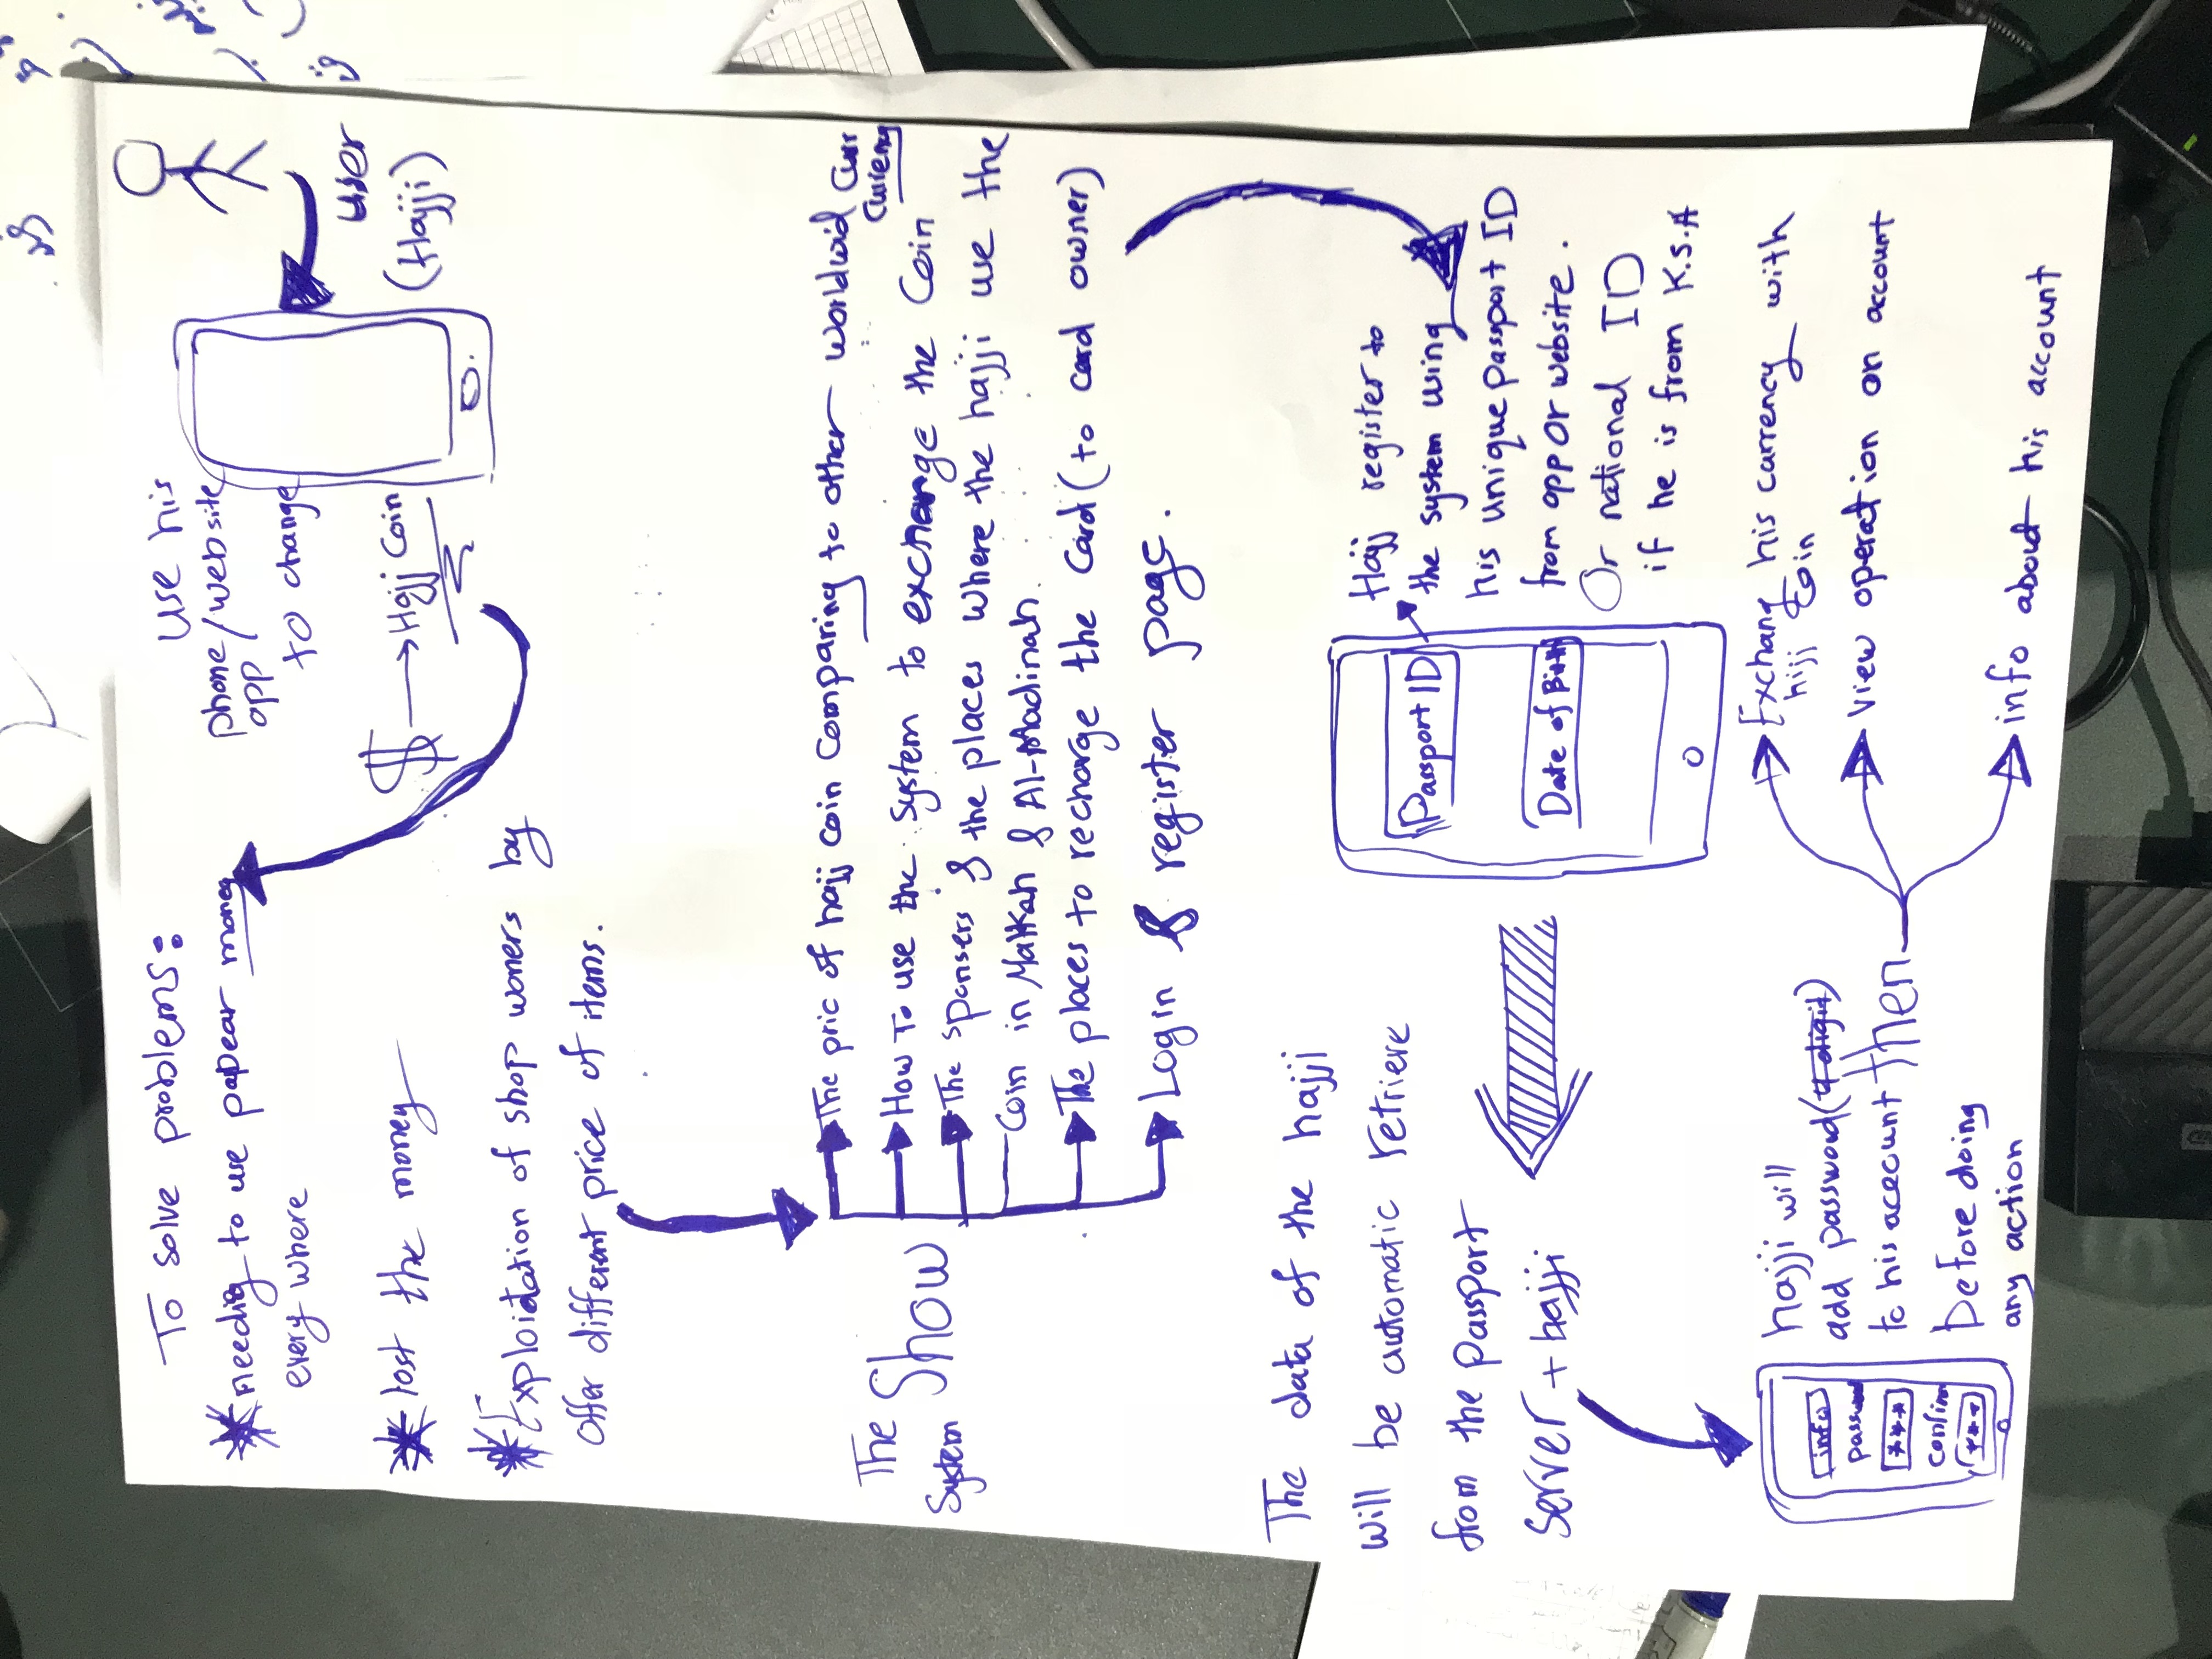 User
(Hajji)
use his
phone/website
app
to change
$ → Hajj Coin
To solve problems:
needig to use papear money
every where
lost the money
Exploidation of shop woners by
offer different price of items.
The Show
System
The pric of hajj coin comparing to other worldwid Curr
Currency
How To use the System to exchange the Coin
The sponsers & the places where the hajji use the
Coin in Makkah & Al-Madinah.
The places to recharge the Card (to card owner)
Login & register page.
Hajj register to
the system using
his unique passport ID
from app or website.
Or national ID
if he is from K.S.A
Passport ID
Date of Birth
The data of the hajji
will be automatic retrieve
from the Passport
Server + hajji
info
password
***
confirm
***
hajji will
add password (4 digit)
to his acecunt
before doing
any action
then
Exchang his carrency with
hijj Coin
view operation on account
info about his account